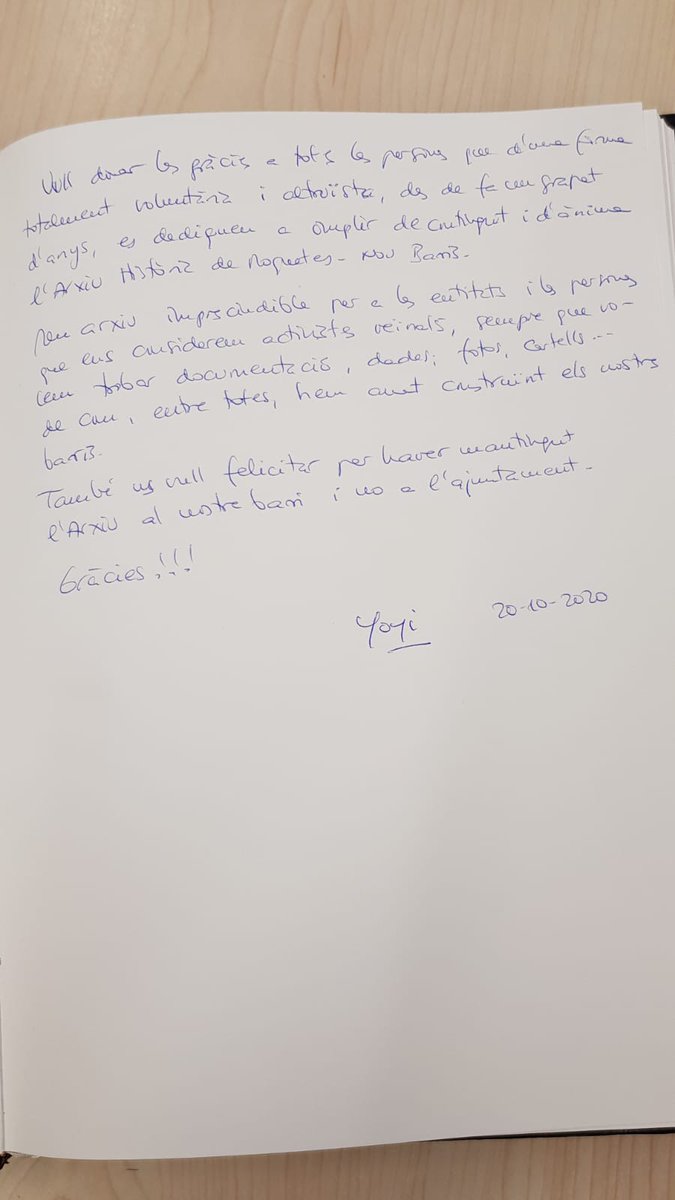 Vull donar les gràcies a tots les persones que d'una forma
totalment voluntària i altruïsta, des de fa un grapat
d'anys, es dediquen a omplir de contingut i d'ànima
l'Arxiu Històric de Roquetes - Nou Barris.
arxiu imprescindible per a les entitats i les persones
que ens considerem activistes veïnals, sempre que vo-
lem trobar documentació, dades, fotos, cartells...
de com, entre totes, hem anat construïnt els nostres
barris.
També us vull felicitar per haver mantingut
l'Arxiu al nostre barri i no a l'ajuntament.
Gràcies!!!
Yoyi 20-10-2020